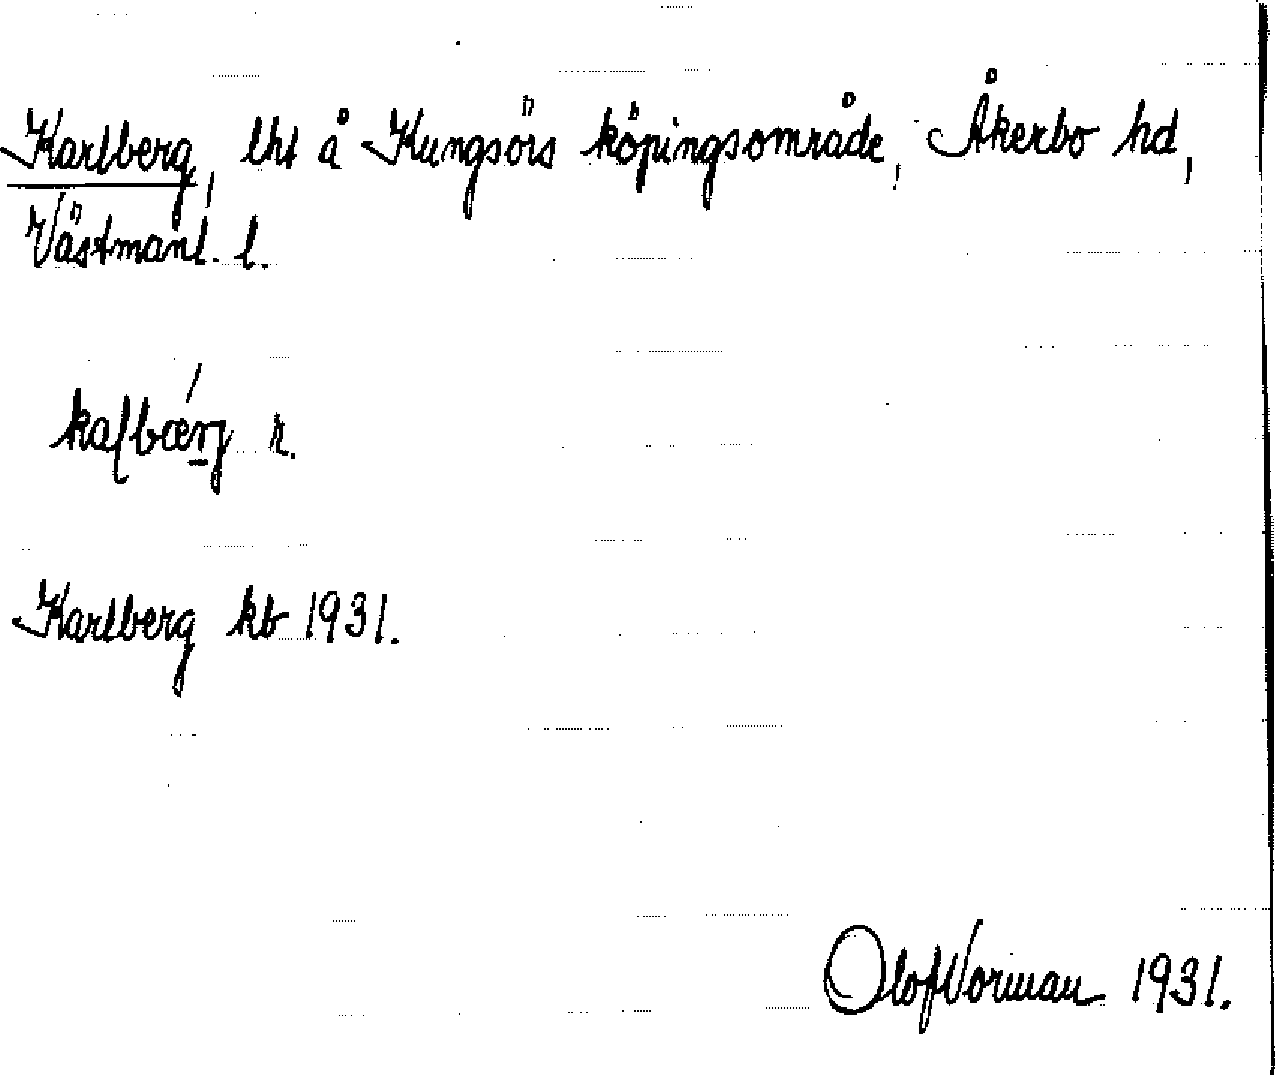 Karlberg, lht å Kungsörs köpingsområde, Åkerbo hd,
Västmanl. l.
r.
Karlberg kb 1931.
Olof Norman 1931.